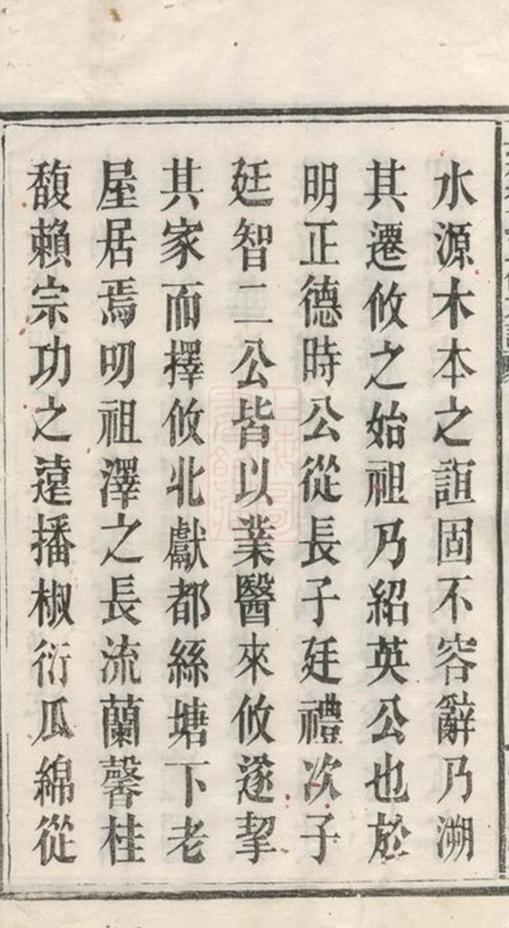 水源木本之誼固不容辭乃溯
其遷攸之始祖乃紹英公也於
明正德時公從長子廷禮次子
廷智二公皆以業醫來攸遂挈
其家而擇攸北獻都絲塘下老
屋居焉叨祖澤之長流蘭馨桂
馥賴宗功之遠播椒衍瓜綿從